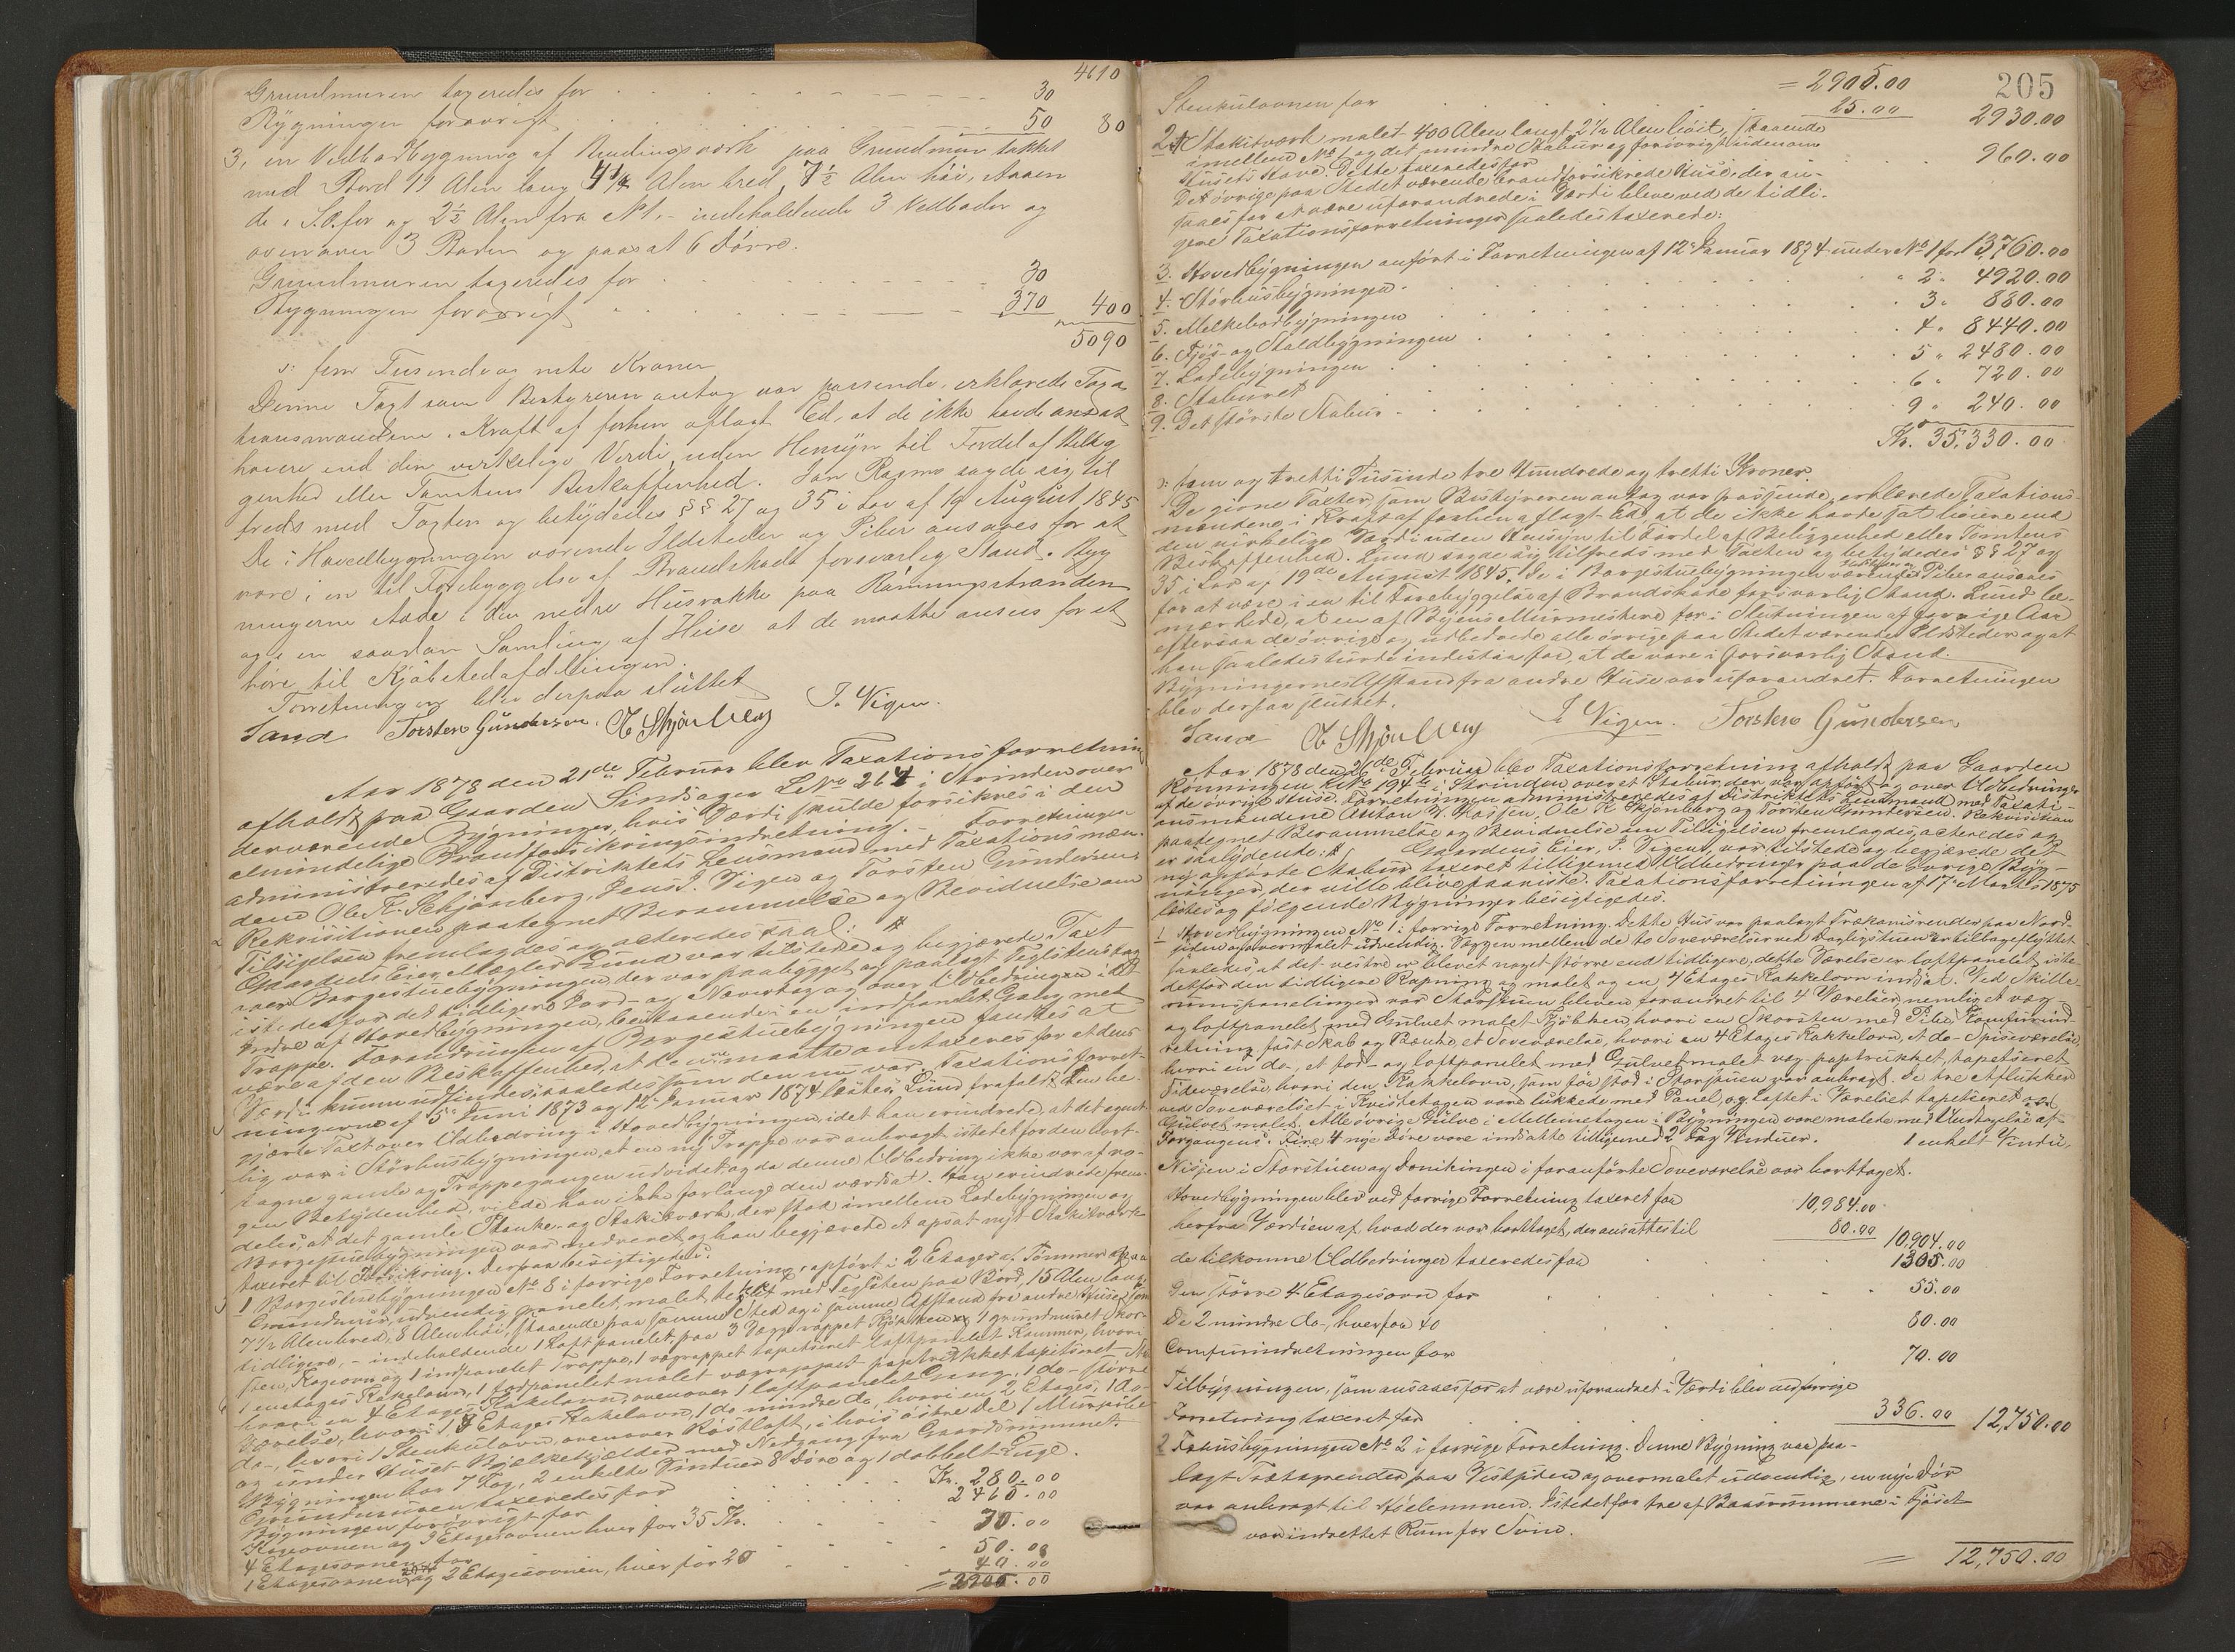 4610
Grundmuren taxeredes for 30
Bygningen forøvrigt 50 80
3, en Vedbodbygning af Bindingsværk paa Grundmur takket
med Bord 11 Alen lang 4 1/4 Alen bred, 7 1/2 Alen høi, staaen
de i S.O. for og 2 1/2 Alen fra No 1, – indeholdende 3 Vedboder og
ovenover 3 Boder og paasat 6 Dørre.
Grundmuren taxeredes for 30
Bygningen forøvrigt 370 400
5090
ɔ: fem Tusinde og niti Kroner
Denne Taxt som Bestyreren antog var passende, erklærede Taxa
tionsmændene i Kraft af forhen aflagt Ed, at de ikke havde ansat
høiere end den virkelige Verdi, uden Hensyn til Fordel af Belig
genhed eller Tomtens Beskaffenhed. Jon Rosmo sagde sig til
freds med Taxten og betydedes §§ 27 og 35 i Lov af 19 August 1845
De i Hovedbygningen værende Ildsteder og Piber ansaaes for at
være i en til Forebyggelse af Brandskade forsvarlig Stand. Byg
ningerne stode i den nedre Husrække paa Ranningsstranden
og i en saadan Samling af Huse at de maatte ansees for at
høre til Kjøbstedafdelingen.
Forretningen blev derpaa sluttet
Sand Torsten Gundersen. O Skjønberg J. Vigen.
Aar 1878 den 21de Februar blev Taxationsforretning
afholdt paa Gaarden Lindsager LNo 264 i Strinden over
derværende Bygninger, hvis Værdi skulde forsikres i den
almindelige Brandforsikringsindretning. – Forretningen
administreredes af Distriktets Lensmand med Taxationsmæn-
dene Ole R. Schjønberg, Jens J. Vigen og Torsten Gundersen.
Rekvisitionen paategnet Berammelse og Bevidnelse om
Tilsigelsen fremlagdes og acteredes saal:
Gaardens Eier, Mægler Lund var tilstede og begjærede Taxt
over Borgestuebygningen, der var paabygget og paalagt Teglstenstag
istedenfor det tidligere Bord- og Nævertag og over Udbedringen i det
Indre af Hovedbygningen, bestaaende i en indpanelet Gang med
Trappe. Forandringen af Borgestuebygningen fandtes at
være af den Beskaffenhed, at den maatte omtaxeres for at dens
Værdi kunde udfindes, saaledes som den nu var. Taxationsforret-
ningerne af 5te Juni 1873 og 12te Januar 1874 læstes. Lund frafaldt den be-
gjærte Taxt over Udbedring i Hovedbygningen, idet han erindrede, at det egent-
lig var i Størhusbygningen, at en ny Trappe var anbragt istedetfor den bort-
tagne gamle og Trappegangen udvidet og da denne Udbedring ikke var af no-
gen Betydenhed, vilde han ikke forlange den værdsat. Han erindrede frem-
deles, at det gamle Planke- og Stakitværk, der stod imellem Ladebygningen og
Borgestuebygningen var nedrevet og han begjærede et opsat nyt Stakitværk
taxeret til Forsikring. Derpaa besigtigedes:
1 Borgestuebygningen No 8 i forrige Forretning, opført i 2 Etager af Tømmer paa
Grundmur, udvendig panelet, malet tækket med Teglsten paa Bord, 15 Alen lang
7 1/2 Alen bred, 8 Alen høi, staaende paa samme Sted og i samme Afstand fra andre Huse som
tidligere, – indeholdende 1 Loftpanelet, paa 3 Vægge rappet Kjøkken 1 grundmuret Skor-
sten, Kogeovn og 1 indpanelet Trappe, 1 vægrappet tapetseret loftpanelet Kammer, hvori
1 enetages Kakelovn, 1 fodpanelet malet vægrappet paptrækket tapetseret
hvori en 4 Etages Kakelovn, ovenover 1 loftpanelet Gang, 1 do- større
Værelse, hvori 1 3 Etages Kakelovn, 1 do mindre do, hvori en 2 Etages, 1 do-
do-, hvori 1 Stenkulovn, ovenover Røstloft, i hvis østre Del 1 Murpibe
og under Huset Hjelkekjelder med Nedgang fra Gaardsrummet.
Bygningen har 7 Fag, 2 enkelte Vinduer 8 Døre og 1 dobbelt Luge.
Grundmuren taxeredes for Kr. 280.00
Bygningen forøvrigt for 2410.00
Kogeovnen og 3 Etagesovnen hver for 35 Kr.
4 Etagesovnen for 50.00
1 Etagesovnen og 2 Etagesovnen, hver for 20 40.00
205
= 2905.00
Stenkulovnen for 25.00 2930.00
2 Stakitværk malet 400 Alen langt, 2 1/2 Alen høit, staaende
imellem No 1 og det mindre Stabur og forøvrigt udenom
Husets Have. Dette taxeredes for 960.00
Det øvrige paa Stedet værende brandforsikrede Huse, der an-
saaes for at være uforandrede i Værdi bleve ved de tidli-
gere Taxationsforretninger saaledes taxerede:
3. Hovedbygningen anført i Forretningen af 12te Januar 1874 under No 1 for 13,760.00
4. Størhusbygningen 2 " 4920.00
5. Melkebodbygningen 3 " 880.00
6. Fjøs- og Staldbygningen 4 " 8440.00
7. Ladebygningen 5 " 2480.00
8. Staburet 6 " 720.00
9. Det større Stabur 9 " 240.00
Kr. 35,330.00
ɔ: fem og tretti Tusinde tre Hundrede og tretti Kroner.
De givne Taxter, som Bestyreren antog var passende, erklærede Taxations-
mændene i Kraft af forhen aflagt Ed, at de ikke havde sat høiere end
den virkelige Værdi uden Hensyn til Fordel af Beliggenhed eller Tomtens
Beskaffenhed. Lund sagde sig tilfreds med Taxten og betydedes §§ 27 og
35 i Lov af 19de August 1845. De i Borgestuebygningen værende Ildsteder og Piber ansaaes
for at være i en til Forebyggelse af Brandskade forsvarlig Stand. Lund be-
mærkede, at en af Byens Murmestere for i Slutningen af forrige Aar
eftersaa de øvrige og udbedrede alle øvrige paa Stedet værende Ildsteder og at
han saaledes turde indestaa for, at de vare i forsvarlig Stand.
Bygningernes Afstand fra andre Huse var uforandret. Forretningen
blev derpaa sluttet.
Sand O Skjønberg J. Vigen. Torsten Gundersen
Aar 1878 den 21de Februar blev Taxationsforretning afholdt paa Gaarden
Rønningen LNo 194 i Strinden over et Stabur, der var opført og over Udbedringer
af de øvrige Huse. Forretningen administreredes af Distriktets Lensmand med Taxati-
onsmændene Anton Hansen, Ole R. Skjønberg og Torsten Gundersen. Rekvisition
paategnet Berammelse og Bevidnelse om Tilsigelsen fremlagdes, acteredes og
er saalydende: Gaardens Eier, J. Vigen, var tilstede og begjærede det
ny opførte Stabur taxeret tilligemed Udbedringer paa de øvrige Byg-
ninger, der ville blive paaviste. Taxationsforretningen af 17de Marts 1875
læstes og følgende Bygninger besigtigedes.
1 Hovedbygningen No 1 i forrige Forretning. Dette Hus var paalagt Trækamsrender paa Nord-
siden og overmalet udvendig. Væggen mellem de to Soveværelser ved Dagligstuen er tilbageflyttet
saaledes, at det vestre er blevet noget større end tidligere, dette Værelse er loftpanelet iste-
detfor den tidligere Rapning og malet og en 4 Etages Kakkelovn indsat. Ved Skille-
rumspanelinger var Storstuen bleven forandret til 4 Værelser, nemlig et væg-
og loftpanelet med Gulvet malet Kjøkken, hvori en Skorsten med Pibe, Komfurind-
retning fast Skab og Bænke, et Soveværelse, hvori en 4 Etages Kakkelovn, et do- Spiseværelse,
hvori en do-, et fod- og loftpanelet med Gulvet malet væg-paptrukket, tapetseret
Sideværelse, hvori den Kakkelovn, som før stod i Storstuen var anbragt. De tre Aflukker
ved Soveværelset i Kvistetagen vare lukkede med Panel, og Loftet i Værelset tapetseret
Gulvet malet. Alle øvrige Gulve i Mellemetagen i Bygningen vare malede med Undtagelse af
Forgangens. Fire 4 nye Døre vare indsatte tilligemed 2 Fag Vinduer. 1 enkelt Vindu,
Nisjen i Storstuen og Donikingen i foranførte Soveværelse var borttaget.
Hovedbygningen blev ved forrige Forretning taxeret for 10,984.00
herfra Værdien af, hvad der var borttaget, der ansattes til 80.00 10,904.00
de tilkomne Udbedringer taxeredes for 1305.00
Den større 4 Etagesovn for 55.00
De 2 mindre do-, hver for 40 80.00
Comfurindretningen for 70.00
Tilbygningen, som ansaaes for at være uforandret i Værdi blev ved forrige
Forretning taxeret for 336.00 12,750.00
2 Fæhusbygningen No 2 i forrige Forretning. Denne Bygning var paa-
lagt Trætagrender paa Vestsiden og overmalet udvendig, en nye Dør
var anbragt til Høelemmen. Istedetfor tre af Baasrummene i Fjøset
var indrettet Rum for Svin.
= 12,750.00